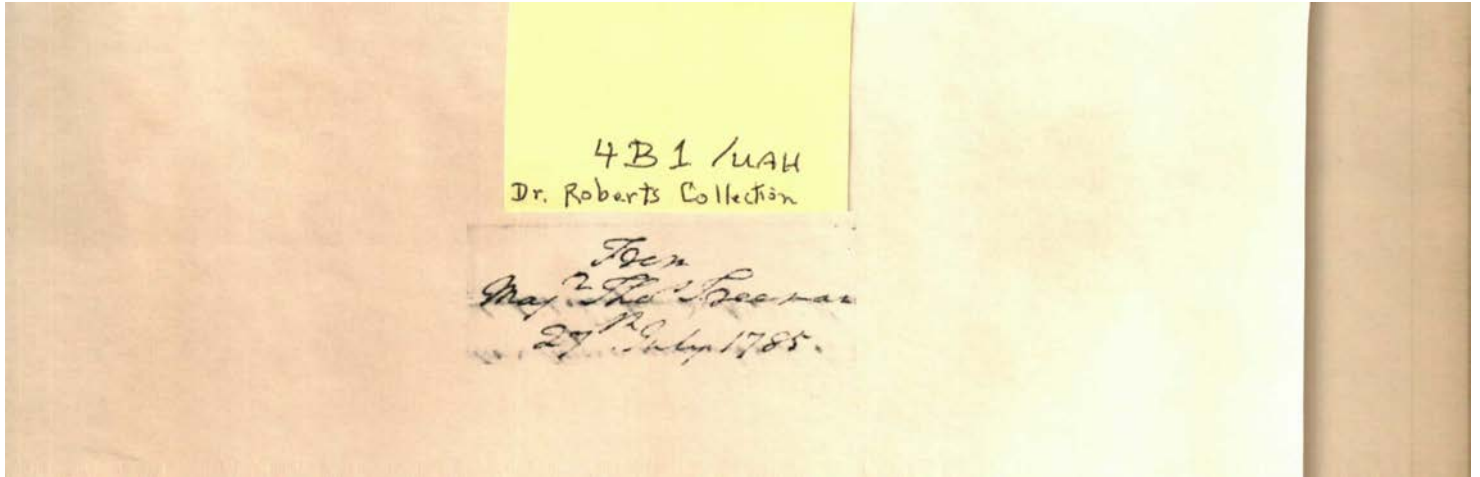 4B1 /UAH
Dr. Roberts Collection
From
Majr Thos Freeman
27th July 1785.